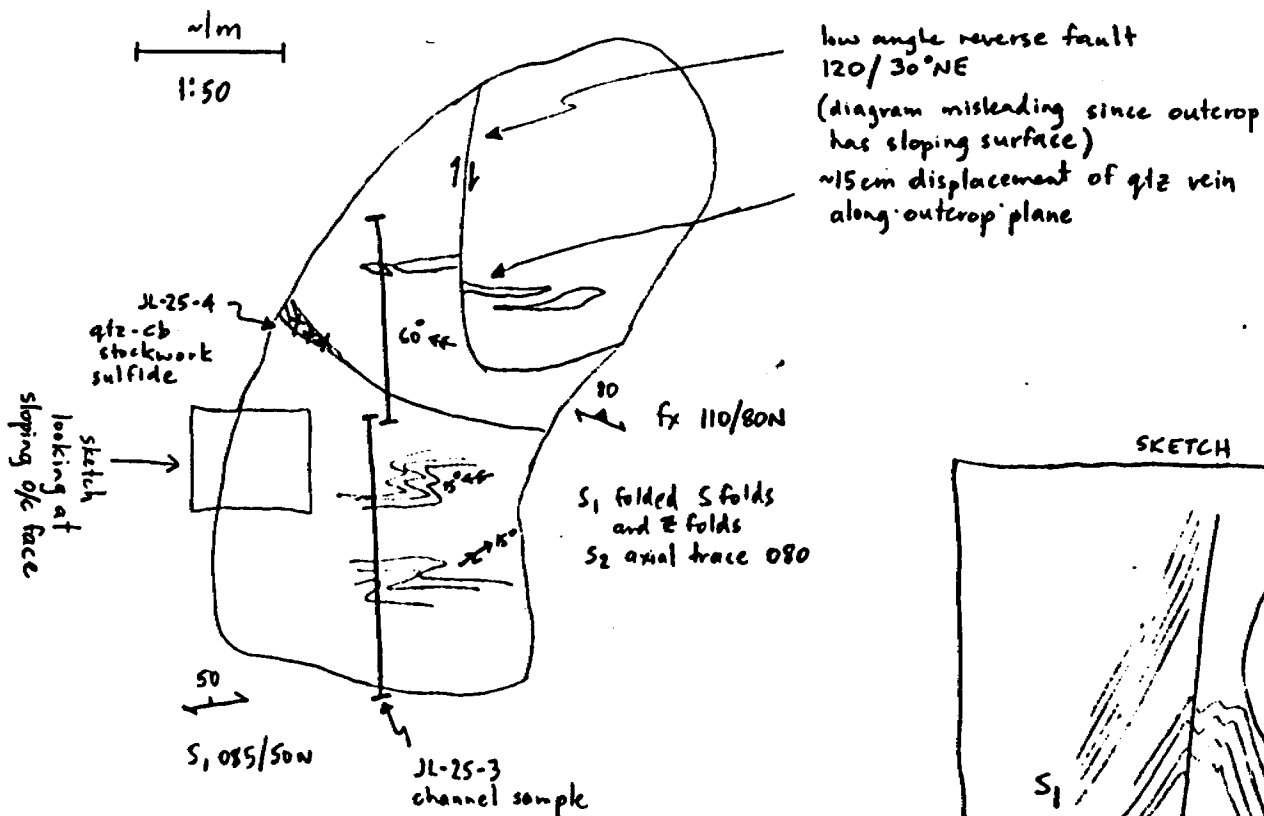 ~1m
1:50
low angle reverse fault
120/30°NE
(diagram misleading since outcrop
has sloping surface)
~15cm displacement of qtz vein
along outcrop plane
JL-25-4
qtz-cb
stockwork
sulfide
60°
80
fx 110/80N
sketch
looking at
sloping o/c face
15°
15°
S₁ folded S folds
and Z folds
S₂ axial trace 080
50
S₁ 085/50N
JL-25-3
channel sample
SKETCH
S₁